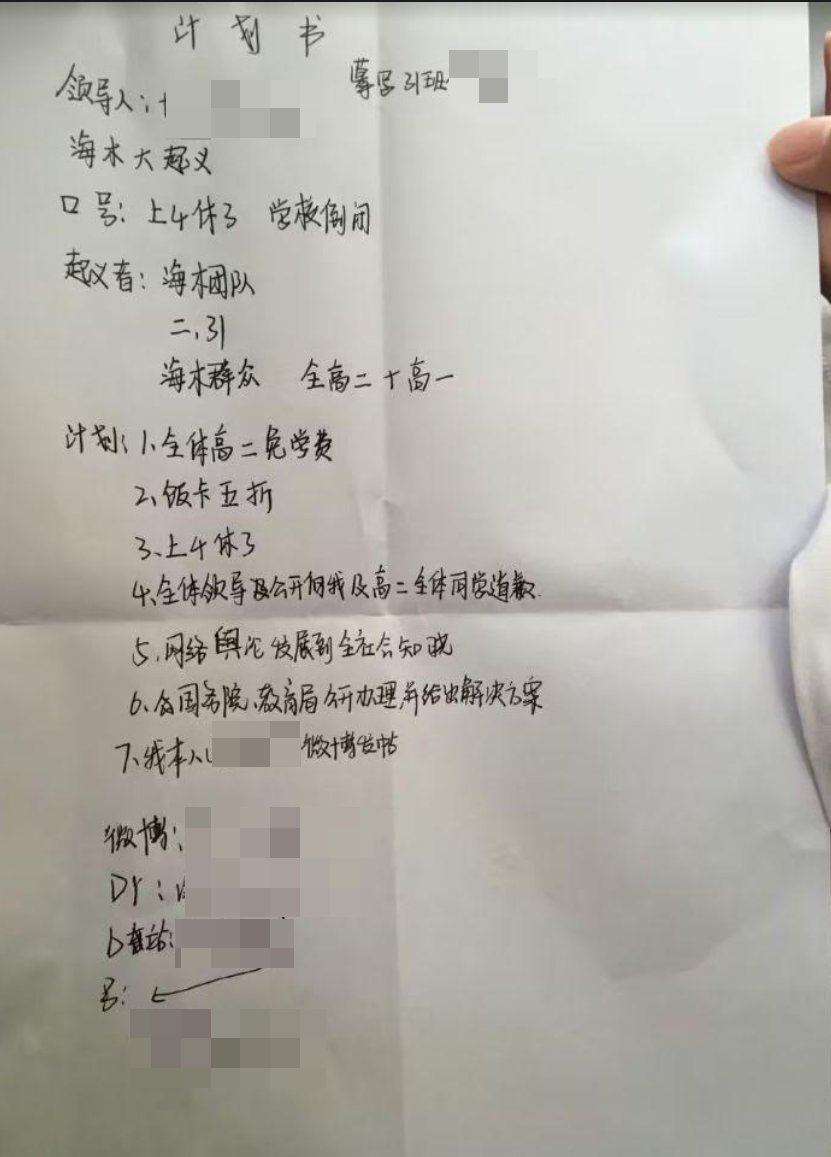 计划书
领导人：
摹写31班
海木大起义
口号：上4休3 学校倒闭
起义者：海木团队
二，31
海木群众 全高二十高一
计划：1、全体高二免学费
2、饭卡五折
3、上4休3
4、全体领导公开向我及高二全体同学道歉.
5、网络舆论发展到全社会知晓
6、国务院、教育局公开办理并给出解决方案
7、我本人 微博发帖
微博：
DY：
b站：
号：